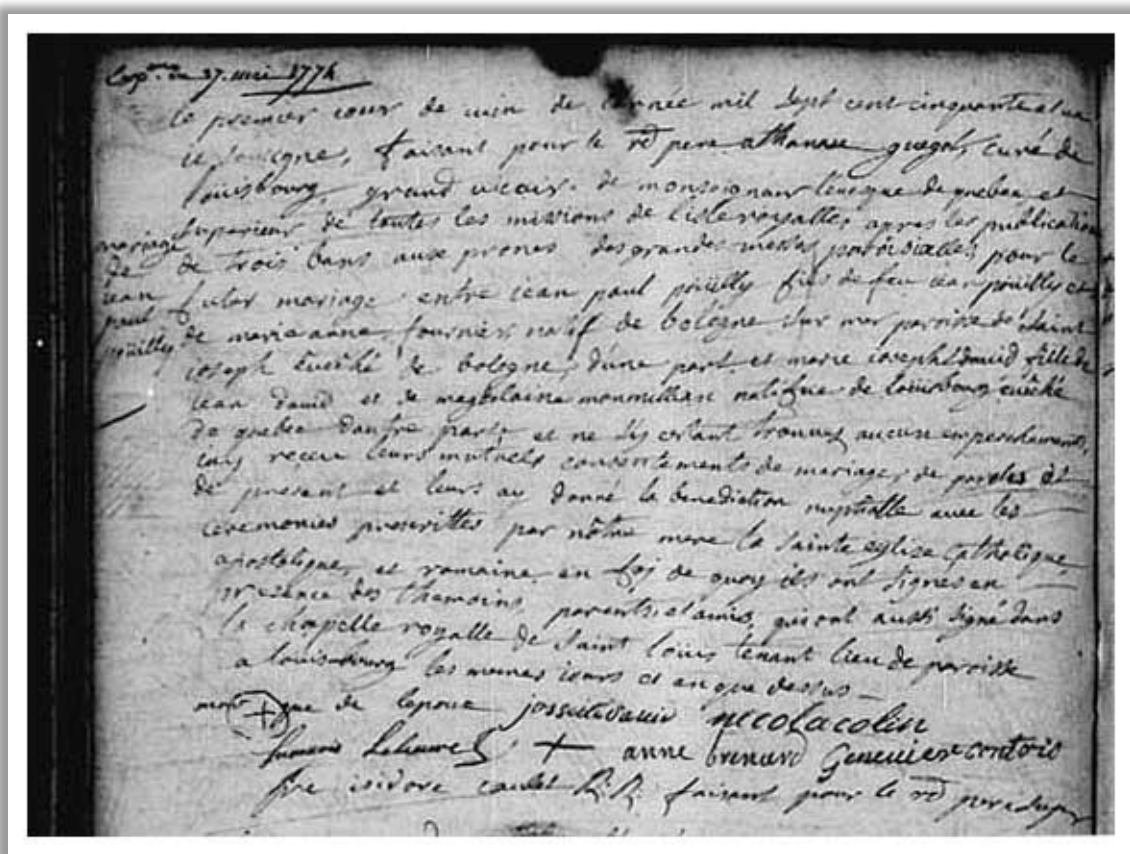 Exp.on du 27. mai 1774
le premier iour de iuin de l'année mil sept cent cinquante et un
ie soussigné, faisant pour le rd pere athanase guegot, curé de
louisbourg grand vicair. de monseignaur l'eveque de quebec et
superieur de toutes les missions de l'isle royalle, apres les publication
mariage
de
iean
paul
poüilly
de trois bans aux prones des grandes messes paroissialles, pour le
futur mariage entre iean paul poüilly fils de feu iean poüilly et
de marie anne fournier natif de bologne sur mer paroisse de saint
ioseph evêché de bologne, d'une part et marie ioseph david fille de
iean david et de magdelaine monmillian natifve de louisbourg evêché
de quebec d'autre part, et ne s'y estant trouvez aucun empeschements,
iay receu leurs mutuels consentements de mariage, de paroles et
de present et leurs ay donné la benediction nuptialle avec les
ceremonies prescrittes par nôtre mere la sainte eglise catholique,
apostolique, et romaine, en foj de quoy ils ont signes en
presence des themoins, parents, et amis, qui ont aussi signé dans
la chapelle royalle de saint louis tenant lieu de paroisse
a louisbourg les mêmes iours et an que dessus
mar + que de l'epoux josseti davin nicolacolin
+ anne brenard Genevier contois
fre isidore caulet R. P. faisant pour le rd pere